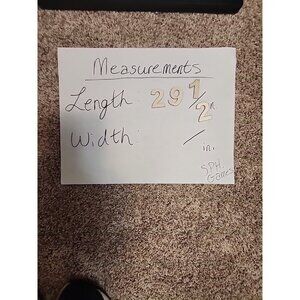 Measurements
Length 29 1/2 in
Width / in.
SPH
Games